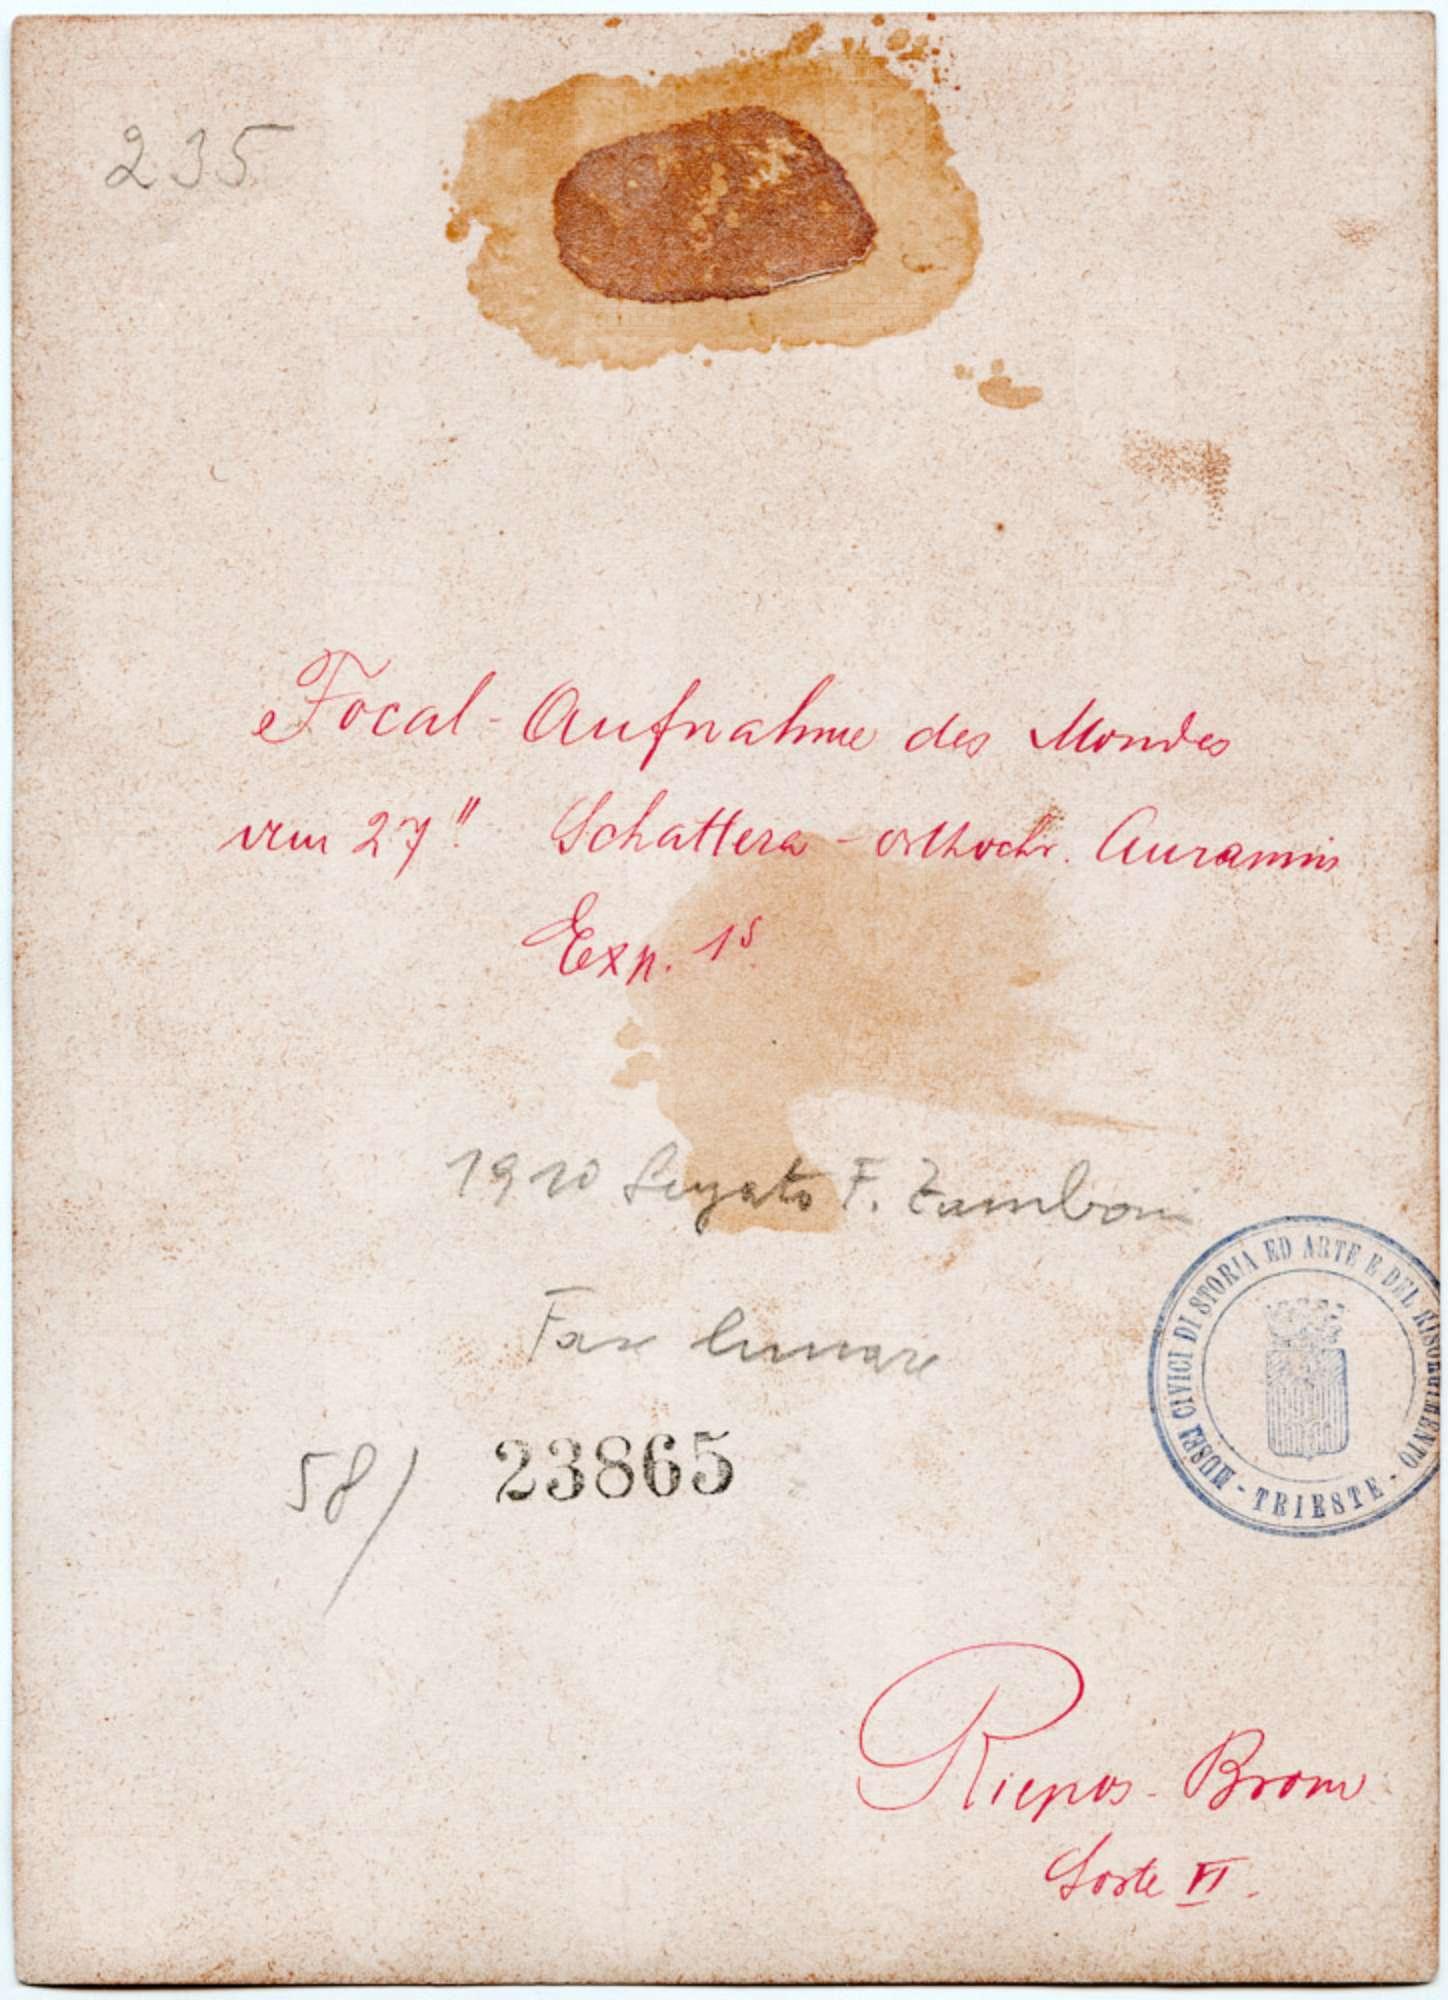 235
Focal-Aufnahme des Mondes
vom 27" Schattera - orthochr. Auramin
Exp. 1s.
1910 Legato F. Zamboni
Fase lunare
58/ 23865
MUSEI CIVICI DI STORIA ED ARTE E DEL RISORGIMENTO - TRIESTE -
Riepos-Brom
Sorte VI.